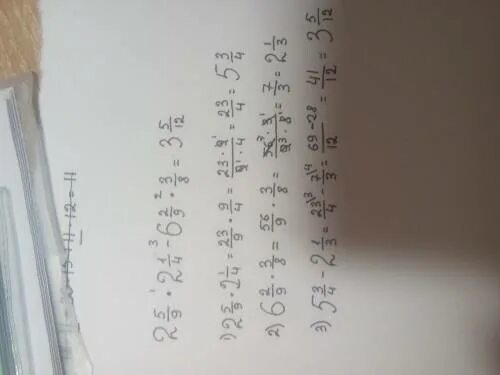 2 5/9 ¹· 2 1/4 ³- 6 2/9 ²· 3/8 = 3 5/12
1) 2 5/9 · 2 1/4 = 23/9 · 9/4 = 23·9¹/9¹·4 = 23/4 = 5 3/4
2) 6 2/9 · 3/8 = 56/9 · 3/8 = 56·3¹/9³·8¹ = 7/3 = 2 1/3
3) 5 3/4 - 2 1/3 = 23\³/4 - 7\⁴/3 = 69-28/12 = 41/12 = 3 5/12